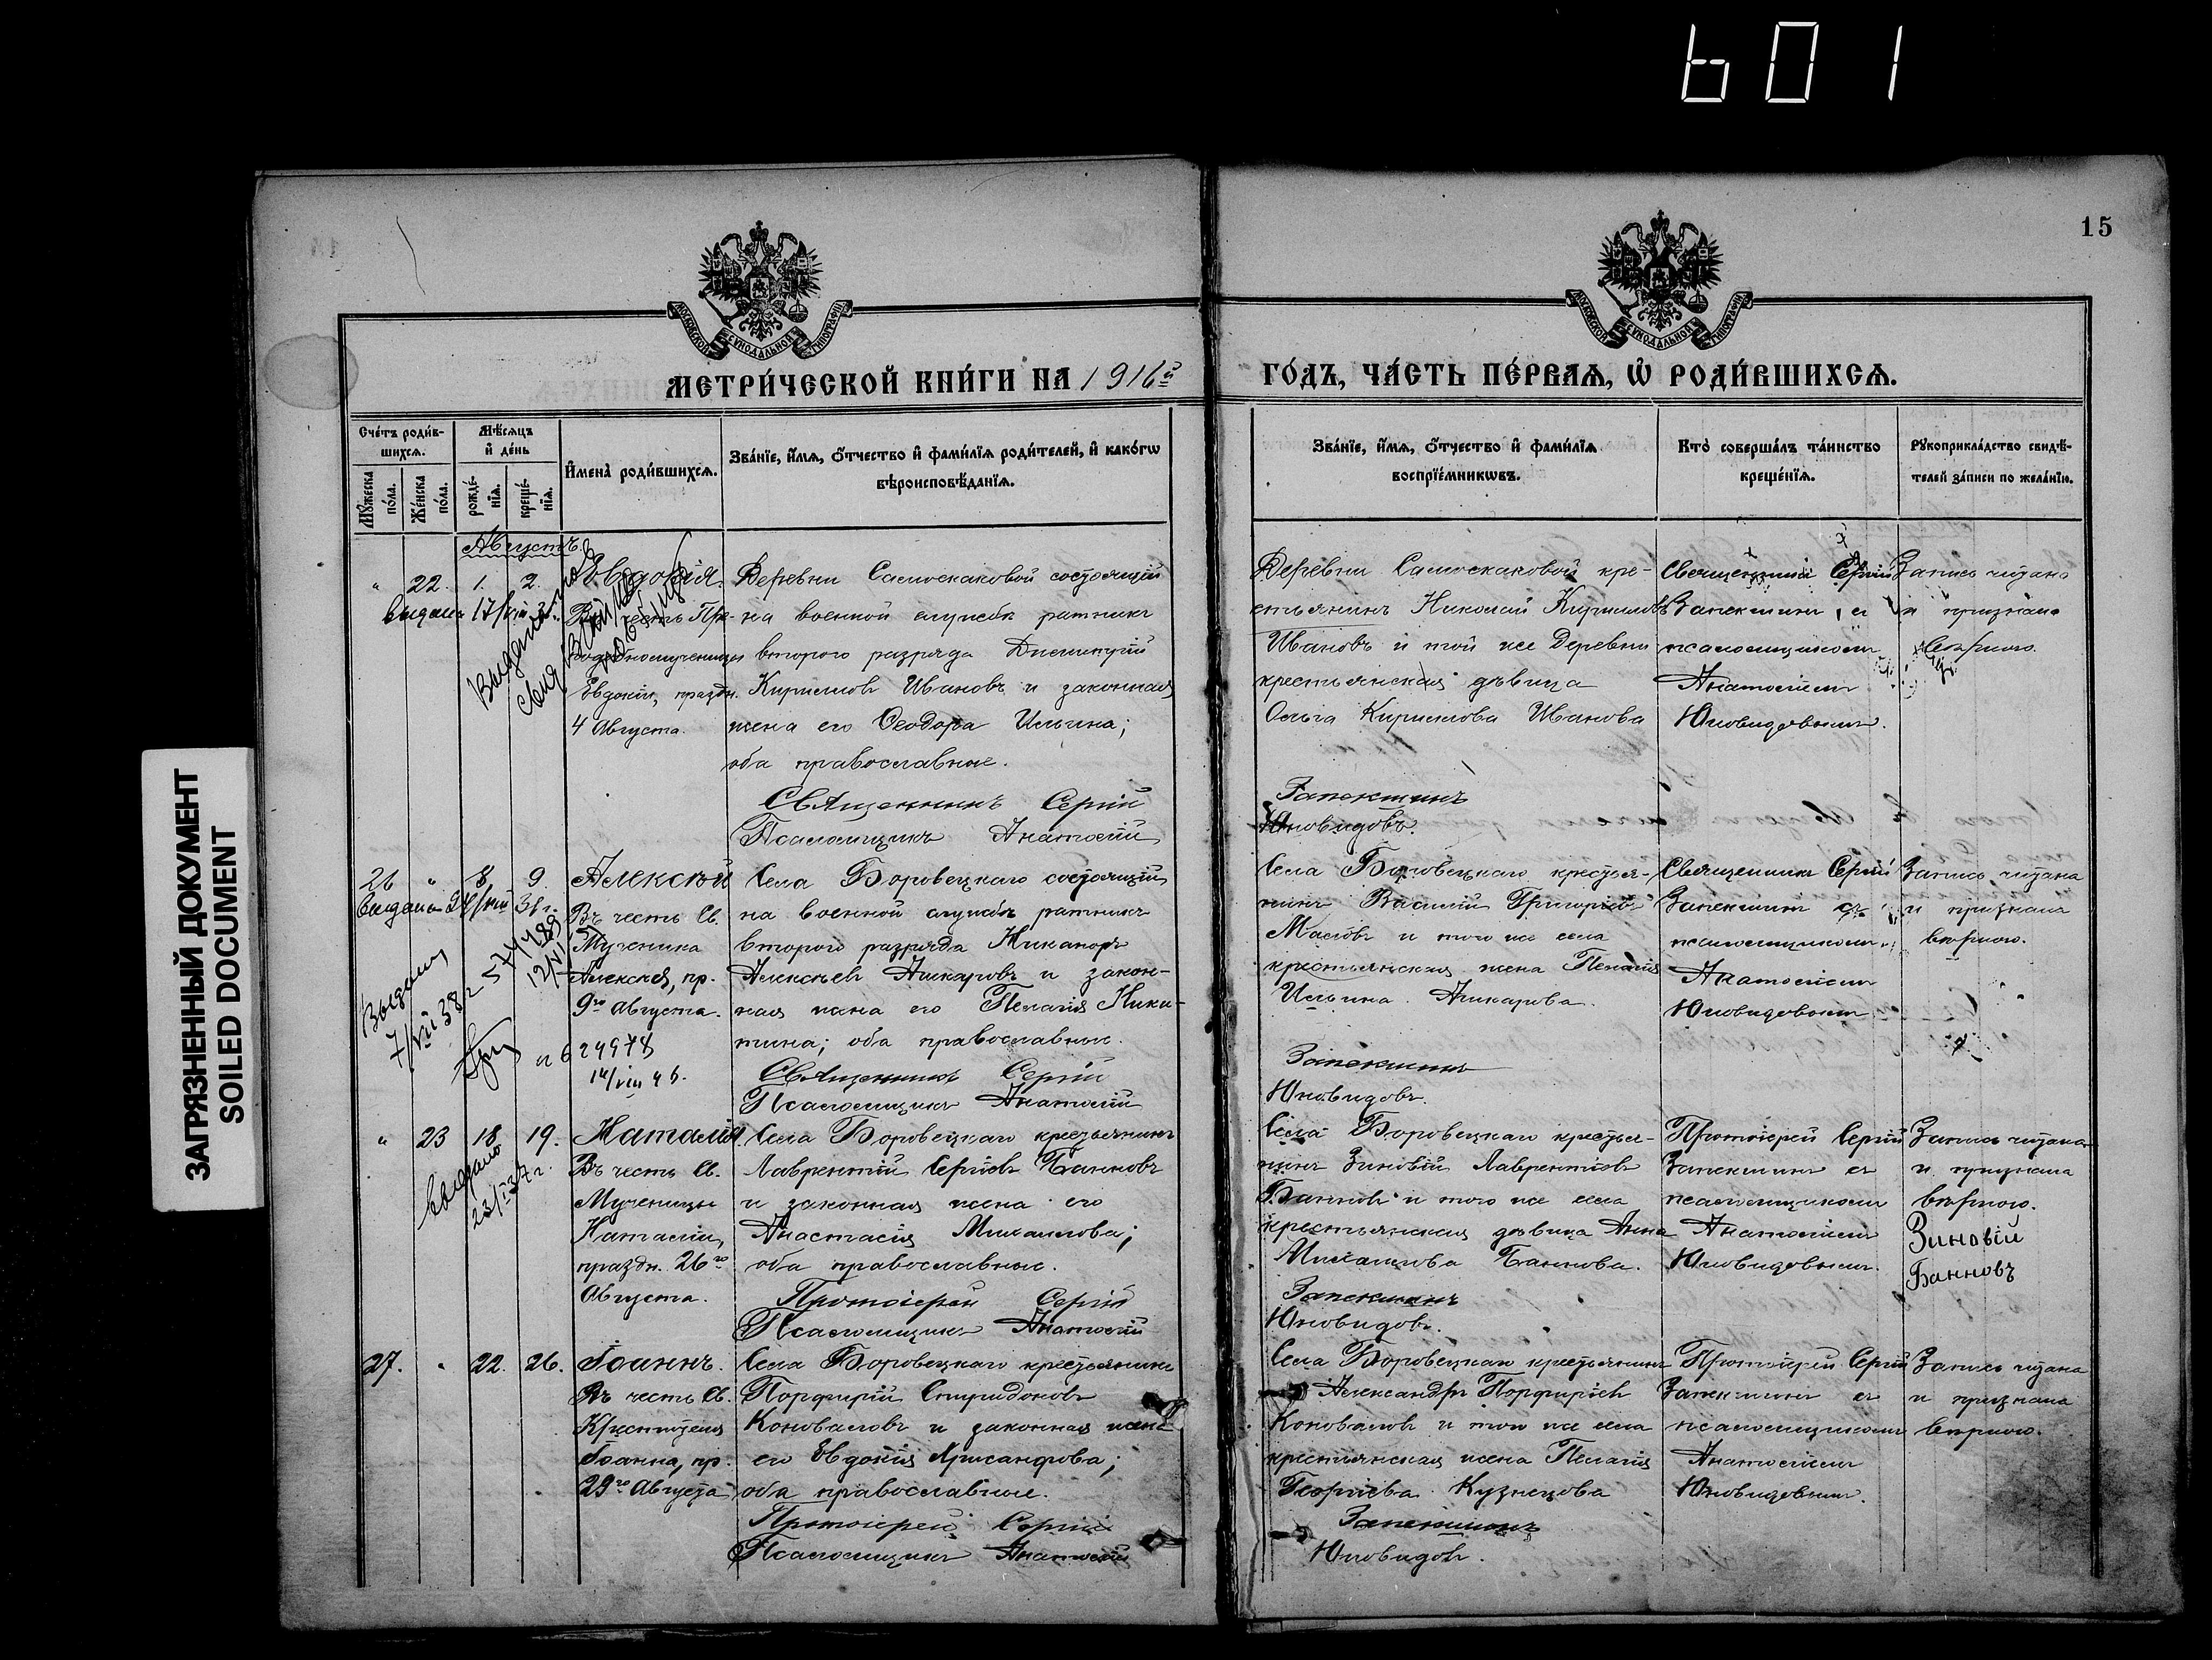 601
15
МОСКОВСКОЙ СѴНОДАЛЬНОЙ ТИПОГРАФІИ
МОСКОВСКОЙ СѴНОДАЛЬНОЙ ТИПОГРАФІИ
МЕТРИ́ЧЕСКОЙ КНИ́ГИ НА 1916й
ГО́ДЪ, ЧА́СТЬ ПЕ́РВАѦ, Ѡ҆ РОДИ́ВШИХСѦ.
Сче́тъ роди́в-
шихсѧ.
Мꙋ́жеска по́ла.
Же́нска по́ла.
Мѣ́сѧцъ и҆ де́нь
рожде́-
нїѧ.
креще́-
нїѧ.
И҆мена̀ роди́вшихсѧ.
Зва́нїе, и҆́мѧ, ѻ҆́тчество и҆ фами́лїѧ роди́телей, и҆ како́гѡ
вѣроисповѣ́данїѧ.
Зва́нїе, и҆́мѧ, ѻ҆́тчество и҆ фами́лїѧ
воспрїе́мникѡвъ.
Кто̀ соверша́лъ та́инство
креще́нїѧ.
Рꙋкоприкла́дство свидѣ́-
телей за́писи по жела́нїю.
Августъ.
" 22. 1. 2. Евдокія.
Въ честь Пре-
подобномученицы
Евдокіи, праздн.
4 Августа.
Деревни Самоскаковой состоящій
на военной службѣ ратникъ
второго разряда Димитрій
Кириловъ Ивановъ и законная
жена его Ѳеодора Ильина;
оба православные.
Священникъ Сергій
Псаломщикъ Анатолій
Деревни Самоскаковой кре-
стьянинъ Николай Кириловъ
Ивановъ и той же деревни
крестьянская дѣвица
Ольга Кирилова Иванова
Запекшинъ
Юновидовъ.
Священникъ Сергій
Запекшинъ, съ
псаломщикомъ
Анатоліемъ
Юновидовымъ.
Запись читана
и признана
вѣрною.
выдана 17/VIII
26 " 8 9. Алексѣй
Въ честь Св.
Мученика
Алексѣя, пр.
9го Августа.
Села Боровецкаго состоящій
на военной службѣ ратникъ
второго разряда Никаноръ
Алексѣевъ Ашкаровъ и закон-
ная жена его Пелагія Ники-
тина; оба православные.
Священникъ Сергій
Псаломщикъ Анатолій
Села Боровецкаго крестья-
нинъ Василій Григорьевъ
Масловъ и того же села
крестьянская жена Пелагія
Ильина Ашкарова.
Запекшинъ
Юновидовъ.
Священникъ Сергій
Запекшинъ съ
псаломщикомъ
Анатоліемъ
Юновидовымъ
Запись читана
и признана
вѣрною.
Выдана
7/VII 38 г
624978
14/VIII 46.
" 23 18 19. Наталія
Въ честь Св.
Мученицы
Наталіи,
праздн. 26го
Августа.
Села Боровецкаго крестьянинъ
Лаврентій Сергіевъ Банновъ
и законная жена его
Анастасія Михаилова;
оба православные.
Протоіерей Сергій
Псаломщикъ Анатолій
Села Боровецкаго крестья-
нинъ Зиновій Лаврентіевъ
Банновъ и того же села
крестьянская дѣвица Анна
Михаилова Баннова.
Запекшинъ
Юновидовъ.
Протоіерей Сергій
Запекшинъ съ
псаломщикомъ
Анатоліемъ
Юновидовымъ.
Запись читана
и признана
вѣрною.
Зиновій
Банновъ
выдано
23/I 37 г.
27. " 22. 26. Іоаннъ.
Въ честь Св.
Крестителя
Іоанна, пр.
29го Августа
Села Боровецкаго крестьянинъ
Порфирій Спиридоновъ
Коноваловъ и законная жена
его Евдокія Хрисанфова;
оба православные.
Протоіерей Сергій
Псаломщикъ Анатолій
Села Боровецкаго крестьянинъ
Александръ Порфиріевъ
Коноваловъ и того же села
крестьянская жена Пелагія
Георгіева Кузнецова
Запекшинъ
Юновидовъ.
Протоіерей Сергій
Запекшинъ съ
псаломщикомъ
Анатоліемъ
Юновидовымъ.
Запись читана
и признана
вѣрною.
ЗАГРЯЗНЕННЫЙ ДОКУМЕНТ
SOILED DOCUMENT